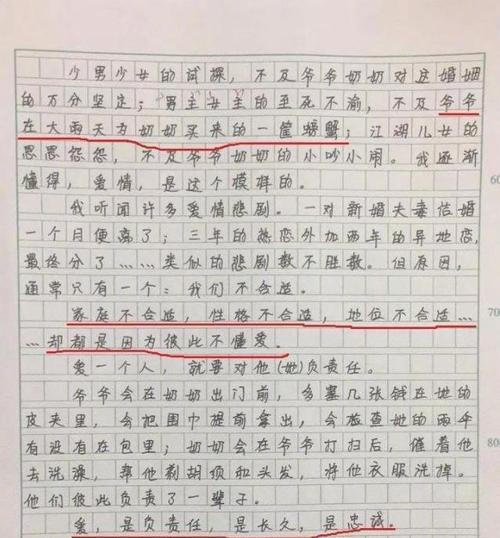 少男少女的试探，不及爷爷奶奶对这婚姻
的万分坚定；男主女主的至死不渝，不及爷爷
在大雨天为奶奶买来的一筐螃蟹；江湖儿女的
恩恩怨怨，不及爷爷奶奶的小吵小闹。我逐渐
懂得，爱情，是这个模样的。
60
我听闻许多爱情悲剧。一对新婚夫妻结婚
一个月便离了；三年的热恋外加两年的异地恋，
最终分了……类似的悲剧数不胜数。但原因，
通常只有一个：我们不合适。
家庭不合适，性格不合适，地位不合适……
70
…却都是因为彼此不懂爱。
爱一个人，就要对他（她）负责任。
爷爷会在奶奶出门前，多塞几张钱在她的
皮夹里，会把围巾提前拿出，会检查她的雨伞
有没有在包里；奶奶会在爷爷打扫后，催着他
80
去洗澡，帮他剃胡须和头发，将他衣服洗掉。
他们彼此负责了一辈子。
爱，是负责任，是长久，是忠诚。